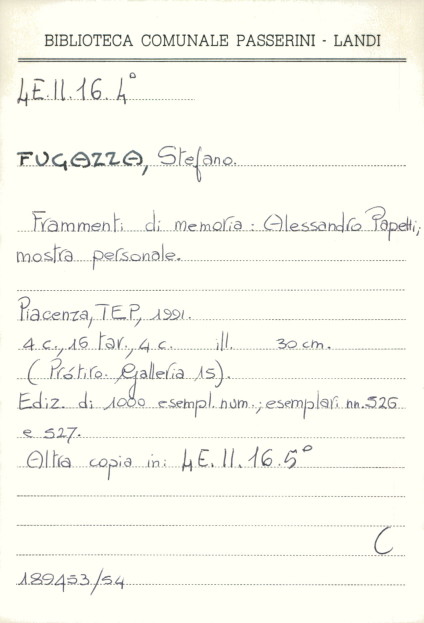 BIBLIOTECA COMUNALE PASSERINI - LANDI
4E.II.16.4°
FUGAZZA, Stefano.
Frammenti di memoria : Alessandro Papetti;
mostra personale.
Piacenza, TEP, 1991.
4 c., 16 tav., 4 c. ill. 30 cm.
( Prótiro. Galleria 15).
Ediz. di 1000 esempl. num.; esemplari nn. 526
e 527.
Altra copia in: 4E.II.16.5°
C
189453/54